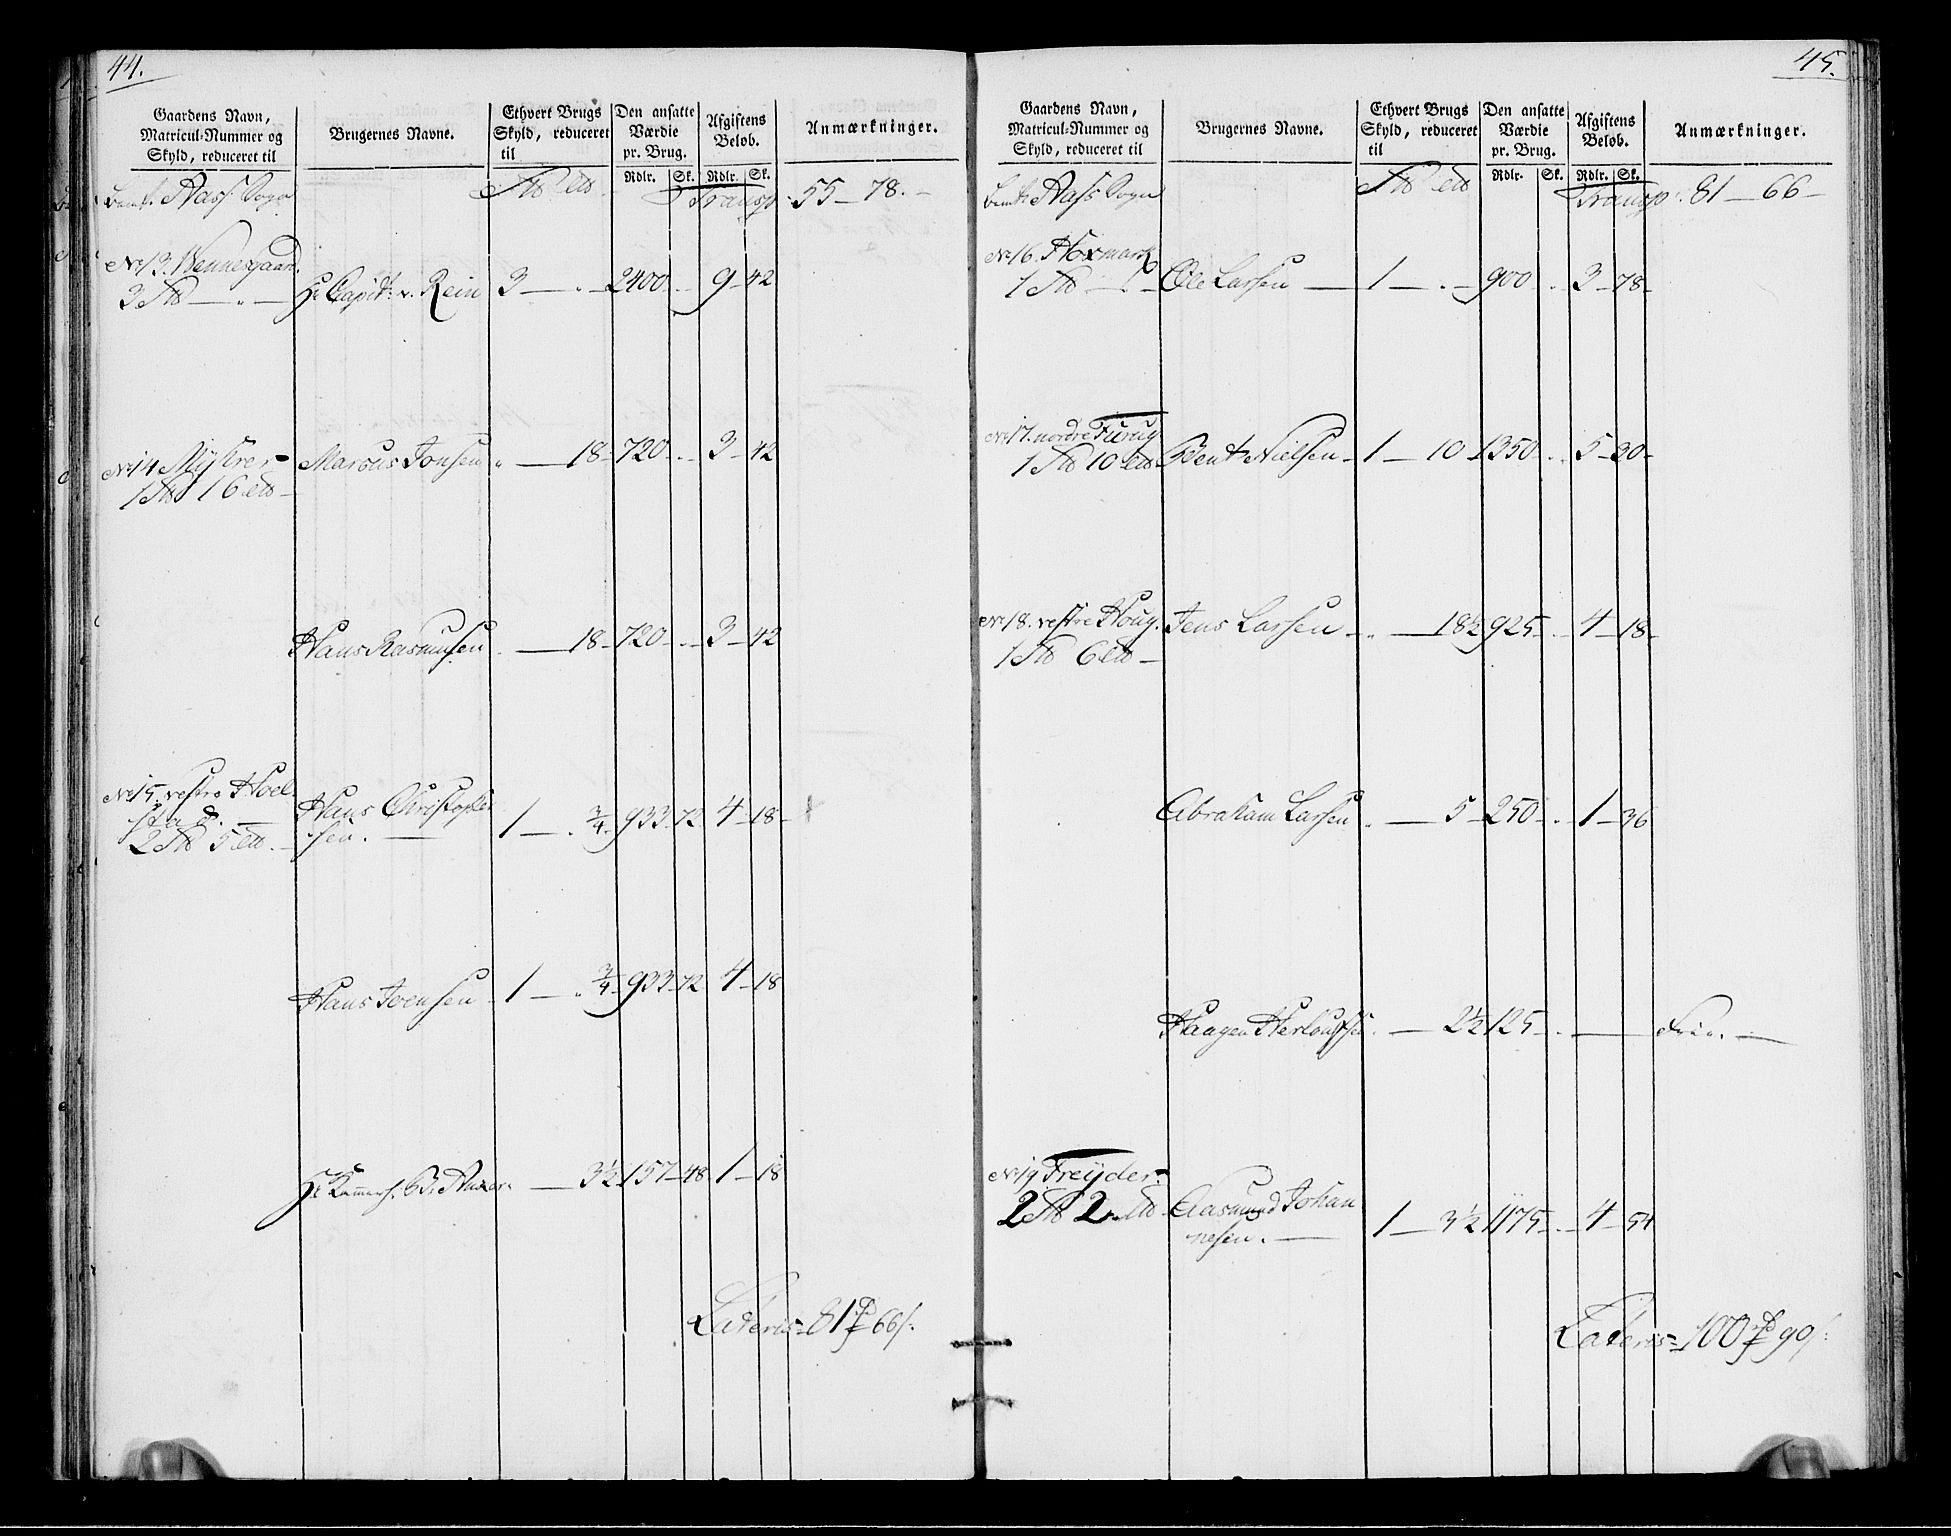 44.
Gaardens Navn, Matricul-Nummer og Skyld, reduceret til
Brugernes Navne.
Ethvert Brugs Skyld, reduceret til
Den ansatte Værdie pr. Brug.
Afgiftens Beløb.
Anmærkninger.
Rdlr. Sk. Rdlr. Sk.
Aas Sogn Transp. 55 - 78.-
No 13. Wennesgaard.
3 - „ - Hr Capit: v. Rein 3 - „ - 2400 - „ - 9 - 42
No 14 Myhrer - Marcus Jonsen „ - 18 - 720 - „ - 3 - 42
1 16
Hans Rasmusen „ - 18 - 720 - „ - 3 - 42
No 15. vestre Hoel-
stad. Hans Christopher
2 5 sen. 1 - „ 3/4 - 933 - 72 4 - 18 -
Hans Joensen - 1 - „ 3/4 - 933 - 72 4 - 18
Hr Kammerh. B: Anker - 3½ 157 - 48 1 - 18
Lateris - 81 66
45.
Gaardens Navn, Matricul-Nummer og Skyld, reduceret til
Brugernes Navne.
Ethvert Brugs Skyld, reduceret til
Den ansatte Værdie pr. Brug.
Afgiftens Beløb.
Anmærkninger.
Rdlr. Sk. Rdlr. Sk.
Aas Sogn Transp: 81 - 66 -
No 16. Hoxmark
1 Ole Larsen - 1 - „ - 900 „ 3 - 78 -
No 17. nordre Furug
1 10 Bent Nielsen - 1 - 10 1350 - „ 5 - 30 -
No 18. vestre Houg. Jens Larsen - „ - 18½ 925 - „ 4 - 18 -
1 6
Abraham Larsen „ - 5 - 250 - „ 1 - 36
Haagen Herlougsen - 2½ 125 - „ - Frie. -
No 19 Freyder -
2 2 Aasmund Johan
nesen. - 1 - 3½ 1175 - „ 4 - 54
Lateris - 100 90